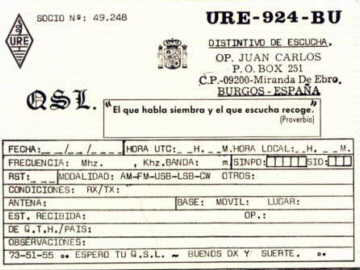 SOCIO Nº: 49.248
URE-924-BU
URE
DISTINTIVO DE ESCUCHA.
OP. JUAN CARLOS
P.O. BOX 251
C.P.-09200-Miranda De Ebro.
BURGOS-ESPAÑA
QSL.
"El que habla siembra y el que escucha recoge."
(Proverbio)
FECHA:__/__/____ HORA UTC:__H.__M. HORA LOCAL:__H.__M.
FRECUENCIA: Mhz. , Khz. BANDA: m SINPO: SID:
RST: MODALIDAD: AM-FM-USB-LSB-CW OTROS:
CONDICIONES: RX/TX:
ANTENA: BASE: MOVIL: LUGAR:
EST. RECIBIDA: OP.:
DE Q.T.H./PAIS:
OBSERVACIONES:
73-51-55 .. ESPERO TU Q.S.L. ~ BUENOS DX Y SUERTE. ..